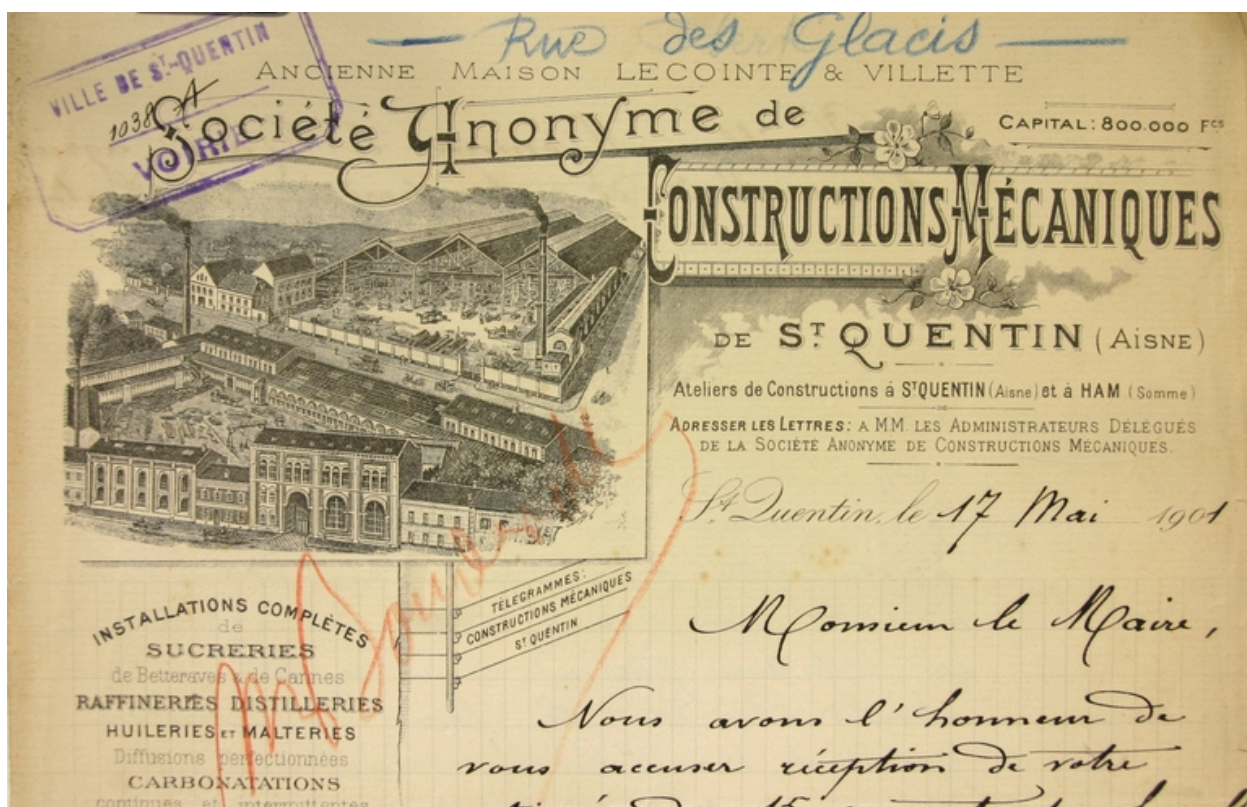 Rue des Glacis
VILLE DE ST-QUENTIN
1038 A
VOIRIE
ANCIENNE MAISON LECOINTE & VILLETTE
Société Anonyme de
CAPITAL: 800.000 FCS
CONSTRUCTIONS MÉCANIQUES
DE ST. QUENTIN (AISNE)
Ateliers de Constructions à ST QUENTIN (Aisne) et à HAM (Somme)
ADRESSER LES LETTRES: A MM LES ADMINISTRATEURS DÉLÉGUÉS
DE LA SOCIÉTÉ ANONYME DE CONSTRUCTIONS MÉCANIQUES.
St Quentin, le 17 Mai 1901
TÉLÉGRAMMES:
CONSTRUCTIONS MÉCANIQUES
ST QUENTIN
INSTALLATIONS COMPLÈTES
de
SUCRERIES
de Betteraves & de Cannes
RAFFINERIES DISTILLERIES
HUILERIES ET MALTERIES
Diffusions perfectionnées
CARBONATATIONS
continues et intermittentes
Monsieur le Maire,
Nous avons l'honneur de
vous accuser réception de votre